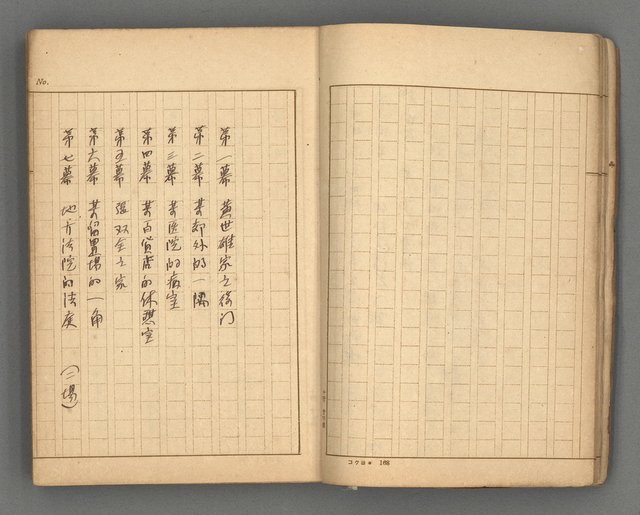 第一幕　黄世雄家之後门
第二幕　某郊外的一隅
第三幕　某医院的病室
第四幕　某百貨店的休憇室
第五幕　張双全之家
第六幕　某留置場的一角
第七幕　地方法院的法庭　（二場）
No.
コクヨ 168